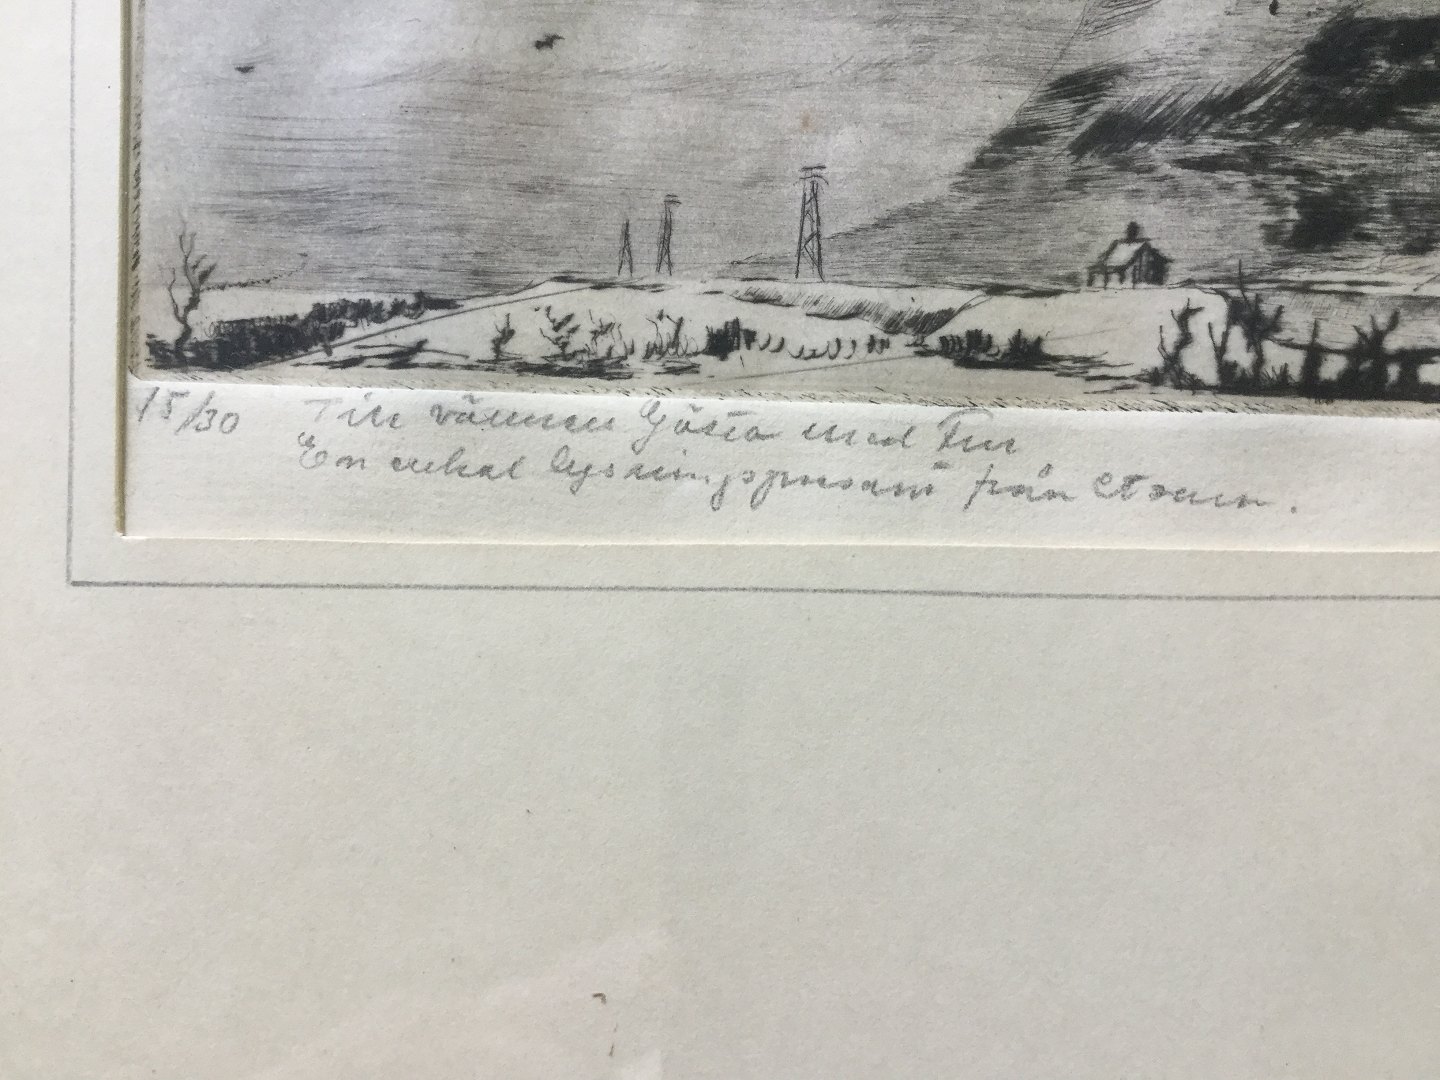 15/30 Till vännen Gösta med Fru
En enkel lysningspresent från